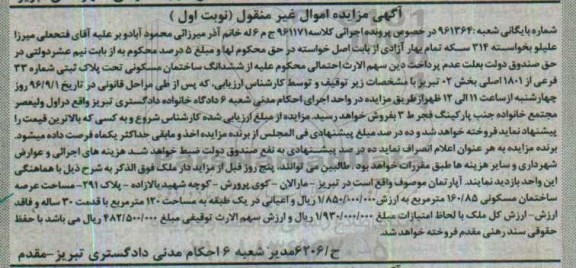 آگهی مزایده اموال غیر منقول (نوبت اول )
شماره بایگانی شعبه:۹۶۱۳۶۴ در خصوص پرونده اجرائی کلاسه ۹۶۱۱۷۱ ج م ۶ له خانم آذر میرزائی محمود آبادو بر علیه آقای فتحعلی میرزا
علیلو بخواسته ۳۱۴ سکه تمام بهار آزادی از بابت اصل خواسته در حق محکوم لها و مبلغ ۵ درصد محکوم به از بابت نیم عشردولتی در
حق صندوق دولت بعلت عدم پرداخت دین سهم الارث احتمالی محکوم علیه از ششدانگ ساختمان مسکونی تحت پلاک ثبتی شماره ۳۳
فرعی از ۱۸۰۱ اصلی بخش ۰۲ تبریز با مشخصات زیر توقیف و توسط کارشناس ارزیابی، که پس از طی مراحل قانونی در تاریخ ۹۶/۹/۱ روز
چهارشنبه از ساعت ۱۱ الی ۱۲ ظهراز طریق مزایده در واحد اجرای احکام مدنی شعبه ۶ دادگاه خانواده دادگستری تبریز واقع دراول ولیعصر
مجتمع خانواده جنب پارکینگ فجر ط ۳ بفروش خواهد رسید. مزایده از مبلغ ارزیابی شده کارشناس شروع و به کسی که بالاترین قیمت را
پیشنهاد نماید فروخته خواهد شد و ده در صد مبلغ پیشنهادی فی المجلس از برنده مزایده اخذ و مابقی حداکثر یکماه فرصت داده میشود.
برنده مزایده به هر عنوان اعلام انصراف نماید ده در صد پیشنهادی به نفع صندوق دولت ضبط خواهد شد. هزینه های اجرائی و عوارض
شهرداری و سایر هزینه ها طبق مقررات خواهد بود. طالبین می توانند، پنج روز قبل از مزاید دار ملک فوق الذکر به شرح ذیل با هماهنگی
این واحد بازدید نمایند. آپارتمان موصوف واقع است در تبریز – مارالان – کوی پرورش - کوچه شهیدبالازاده – پلاک ۲۹۱- مساحت عرصه
ساختمان مسکونی ۱۶۰/۸۵ مترمربع به ارزش ۱/۸۵۰/۰۰۰/۰۰۰ ریال و اعیانی در یک طبقه به مساحت ۱۲۰ مترمربع با قدمت ۳۰ ساله و فاقد
ارزش- ارزش کل ملک با لحاظ امتیازات مبلغ ۱/۹۳۰/۰۰۰/۰۰۰ ریال و ارزش سهم الارث توقیفی مبلغ ۴۸۲/۵۰۰/۰۰۰ ریال می باشد با حفظ
حقوقی سند رهنی مقدم فروخته خواهد شد.
ح/۶۲۰۶ مدیر شعبه ۶ احکام مدنی دادگستری تبریز-مقدم